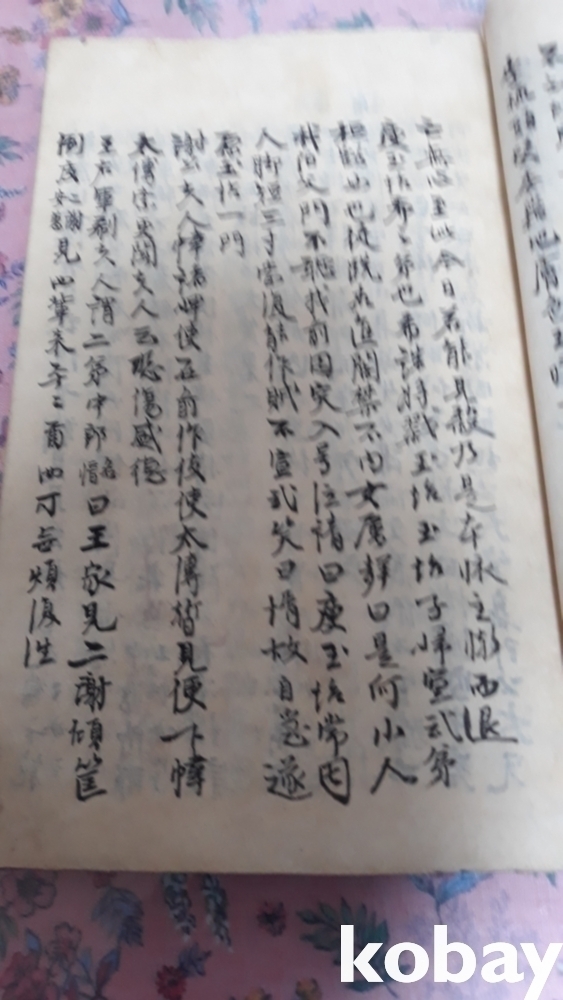 亡無心至此今日若能見殺乃是本懷主慚而退
庾玉坮希之弟也希誅將戮玉坮玉坮子婦宣武弟
桓豁女也徒跣求進閽禁不內女厲聲曰是何小人
我伯父門不聽我前因突入号泣請曰庾玉坮常因
人腳短三寸當復能作賊不宣武笑曰壻故自急遂
原玉坮一門
謝公夫人幃諸婢使在前作伎使太傅暫見便下幃
太傅索更開夫人云恐傷盛德
王右軍郗夫人謂二弟中郎曰王家見二謝傾筐
倒庋見汝輩來平平爾汝可無煩復往
kobay